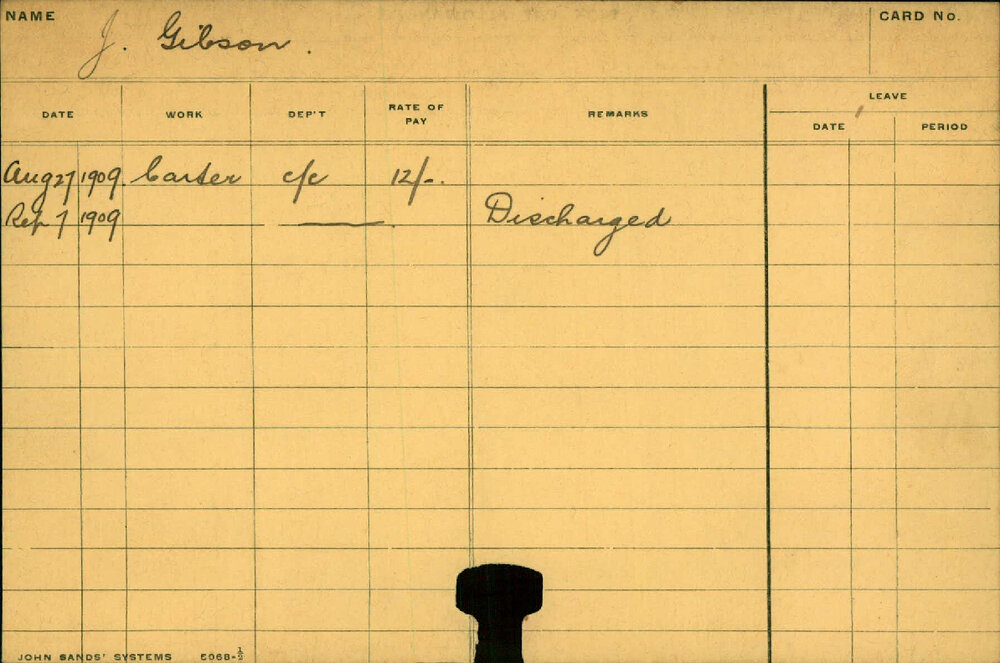 NAME J. Gibson. CARD No.
LEAVE
DATE WORK DEP'T RATE OF PAY REMARKS DATE PERIOD
Aug 27 1909. Carter c/c 12/-.
Sep 7 1909 Discharged
JOHN SANDS' SYSTEMS 5068-½